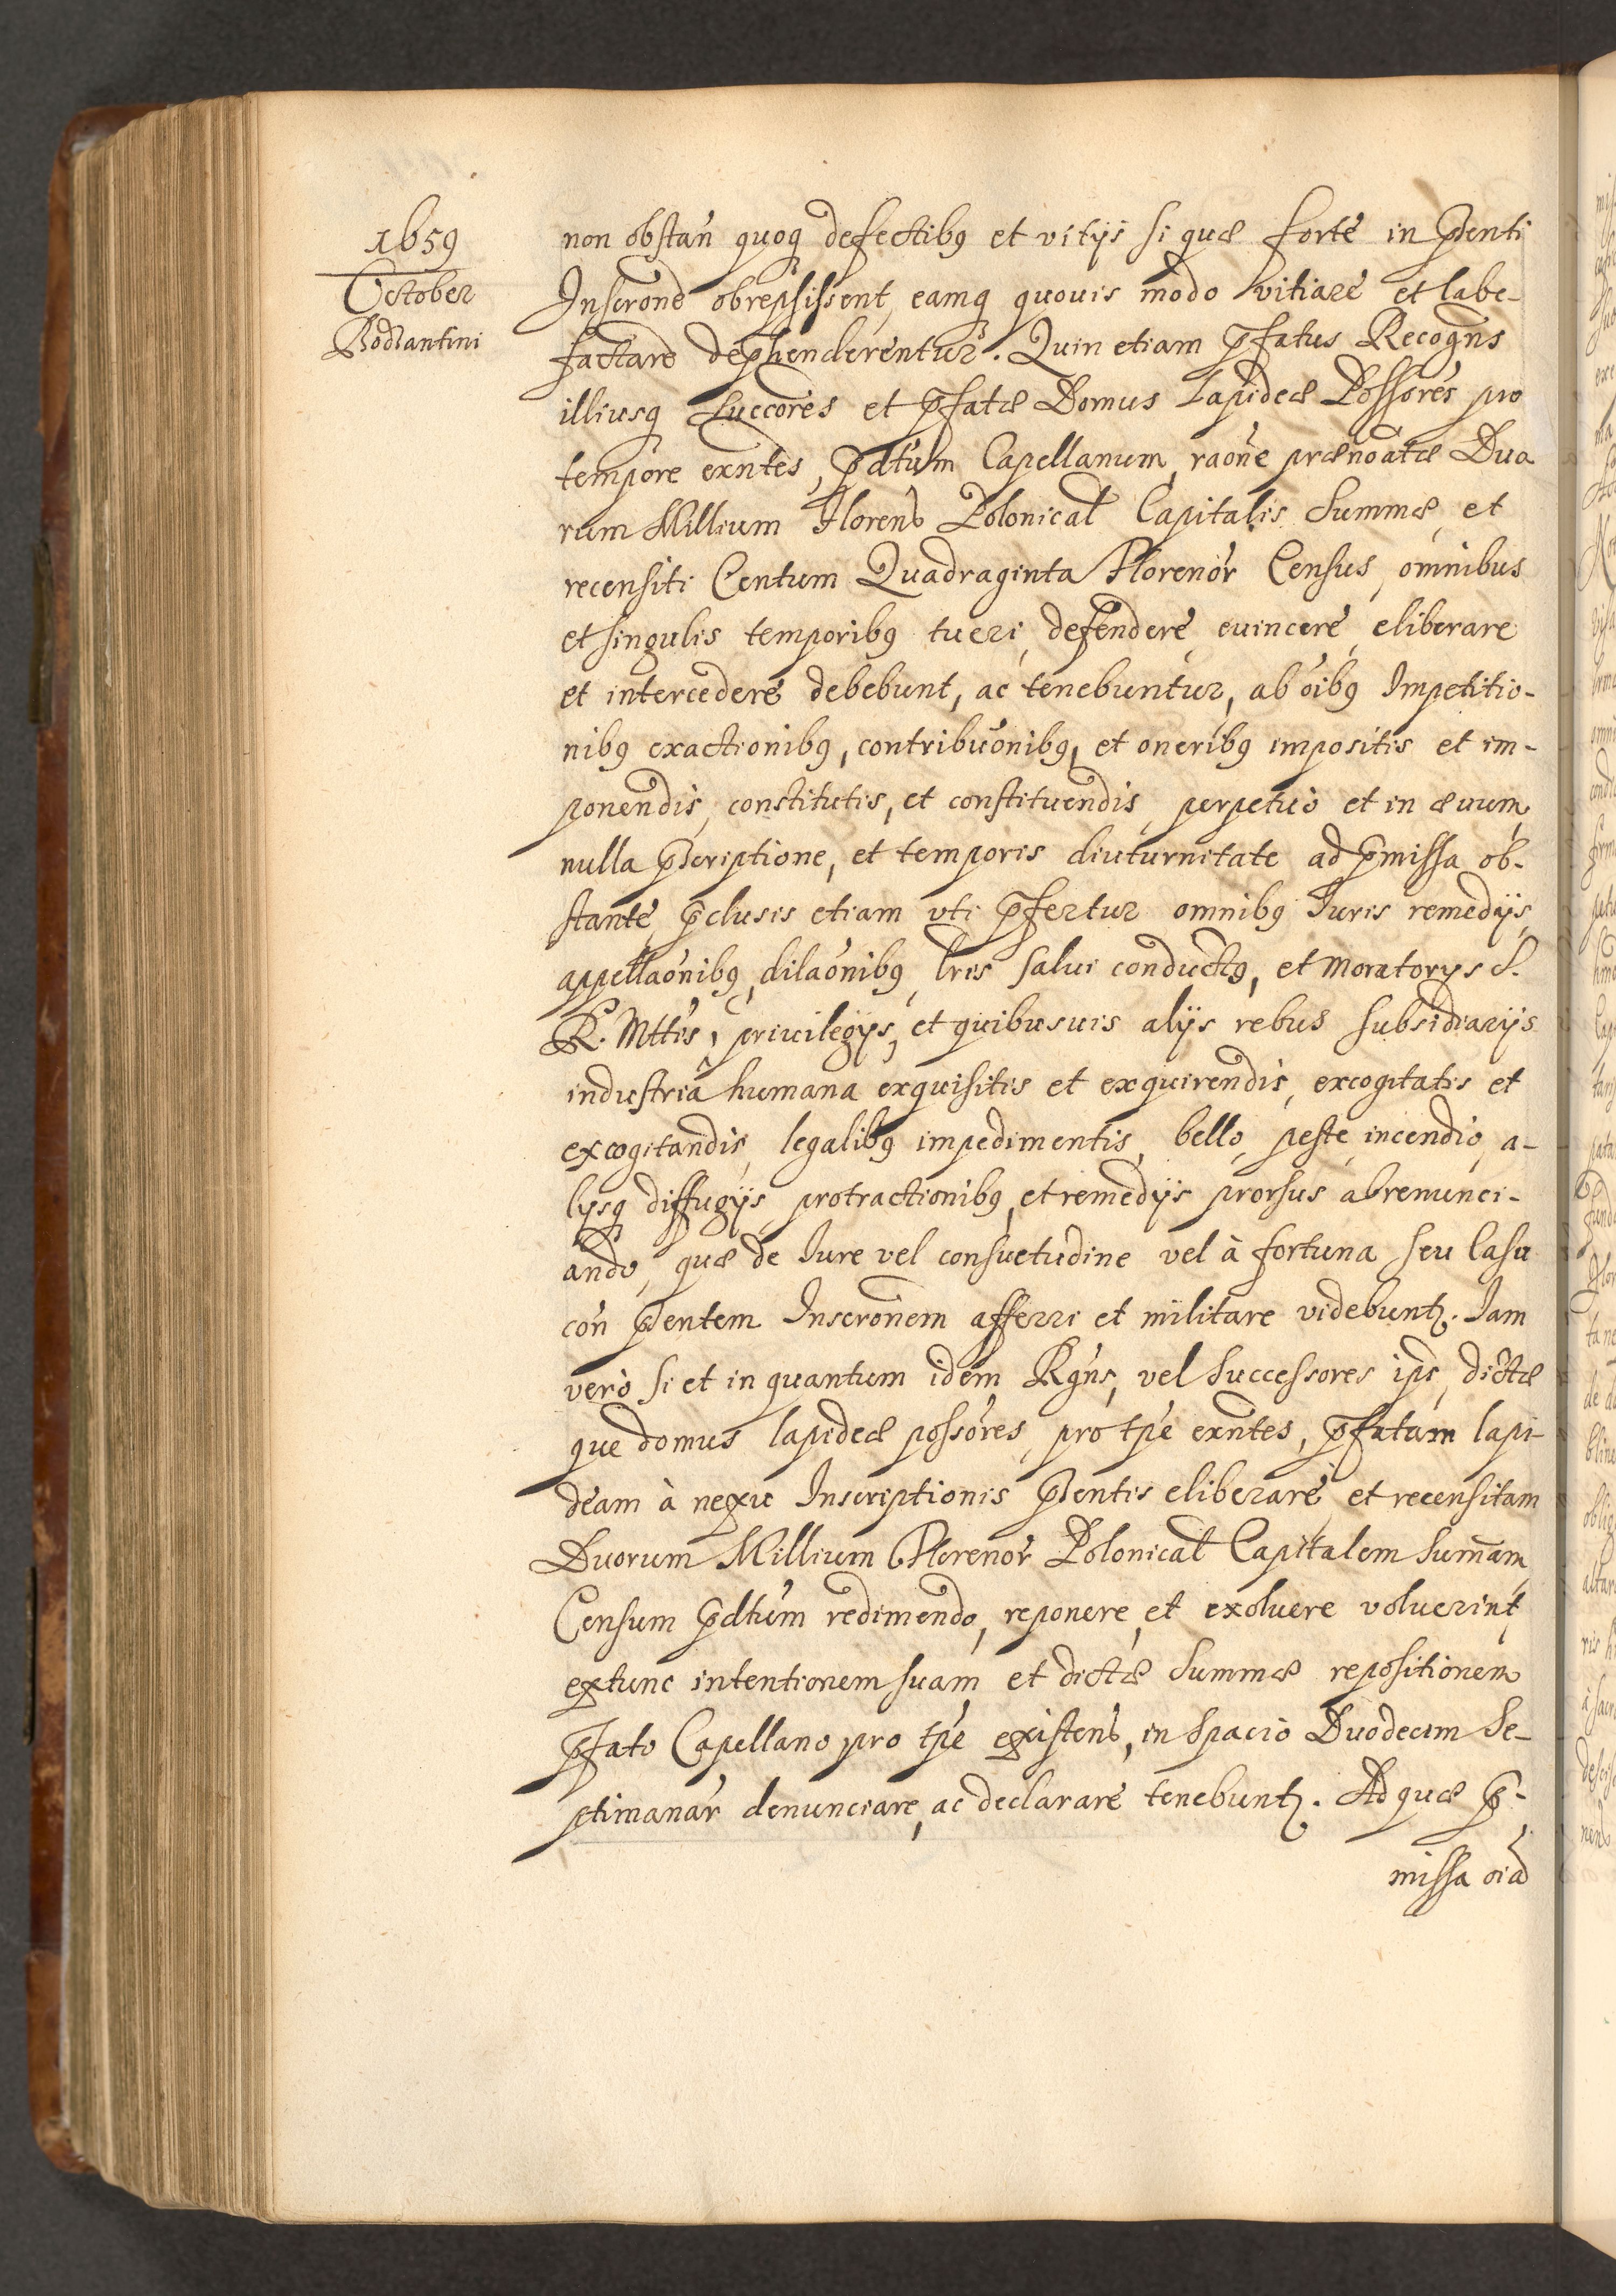 1659
October
Bodzantini
non obstan̄ quoq₃ defectibq₃ et vitijs si quæ forte in p̄senti
Inscrone obrepsissent, eamq₃ quouis modo vitiare et labe-
factare dep̄henderentur. Quin etiam p̄fatus Recogn̄s
illiusq₃ Succores et p̄fatæ Domus Lapideæ Possores pro
tempore exn̄tes, p̄dtum Capellanum, raōne prænoatæ Dua
rum Millium Floren̄ Polonical̄ Capitalis Summæ, et
recensiti Centum Quadraginta Florenor̄ Census, omnibus
et singulis temporibq₃ tueri, defendere, euincere, eliberare
et intercedere debebunt, ac tenebuntur, ab oībq₃ Impetitio-
nibq₃ exactionibq₃, contribuōnibq₃, et oneribq₃ impositis et im-
ponendis, constitutis, et constituendis, perpetuò et in æuum,
nulla p̄scriptione, et temporis diuturnitate ad p̄missa ob-
stante, p̄clusis etiam uti p̄fertur omnibq₃ Iuris remedijs,
appellaōnibq₃, dilaōnibq₃, lr̄is salui conductq₃, et moratorys S.
R. Mttis, priuilegijs, et quibusuis alijs rebus subsidiarijs
industriâ humana exquisitis et exquirendis, excogitatis et
excogitandis, legalibq₃ impedimentis, bello, peste, incendio, a-
lysq₃ diffugijs, protractionibq₃, et remedijs prorsus abrenunci-
ando, quæ de Iure vel consuetudine vel à fortuna seu Casu
con̄ p̄sentem Inscronem afferri et militare videbuntꝫ. Iam
verò si et in quantum idem Rgn̄s, vel Successores ips̄, dictæ
que domus lapideæ possores, pro tp̄e exn̄tes, p̄fatam lapi-
deam à nexu Inscriptionis p̄sentis eliberare, et recensitam
Duorum Millium Florenor̄ Polonical̄ Capitalem Summ̄am,
Censum p̄dtum redimendo, reponere, et exoluere voluerint,
extunc intentionem suam et dictæ Summæ repositionem
p̄fato Capellano pro tp̄e existen̄, in Spacio Duodecim Se-
ptimanar̄ denunciare, ac declarare tenebuntꝫ. Ad quæ p̄-
missa oīa